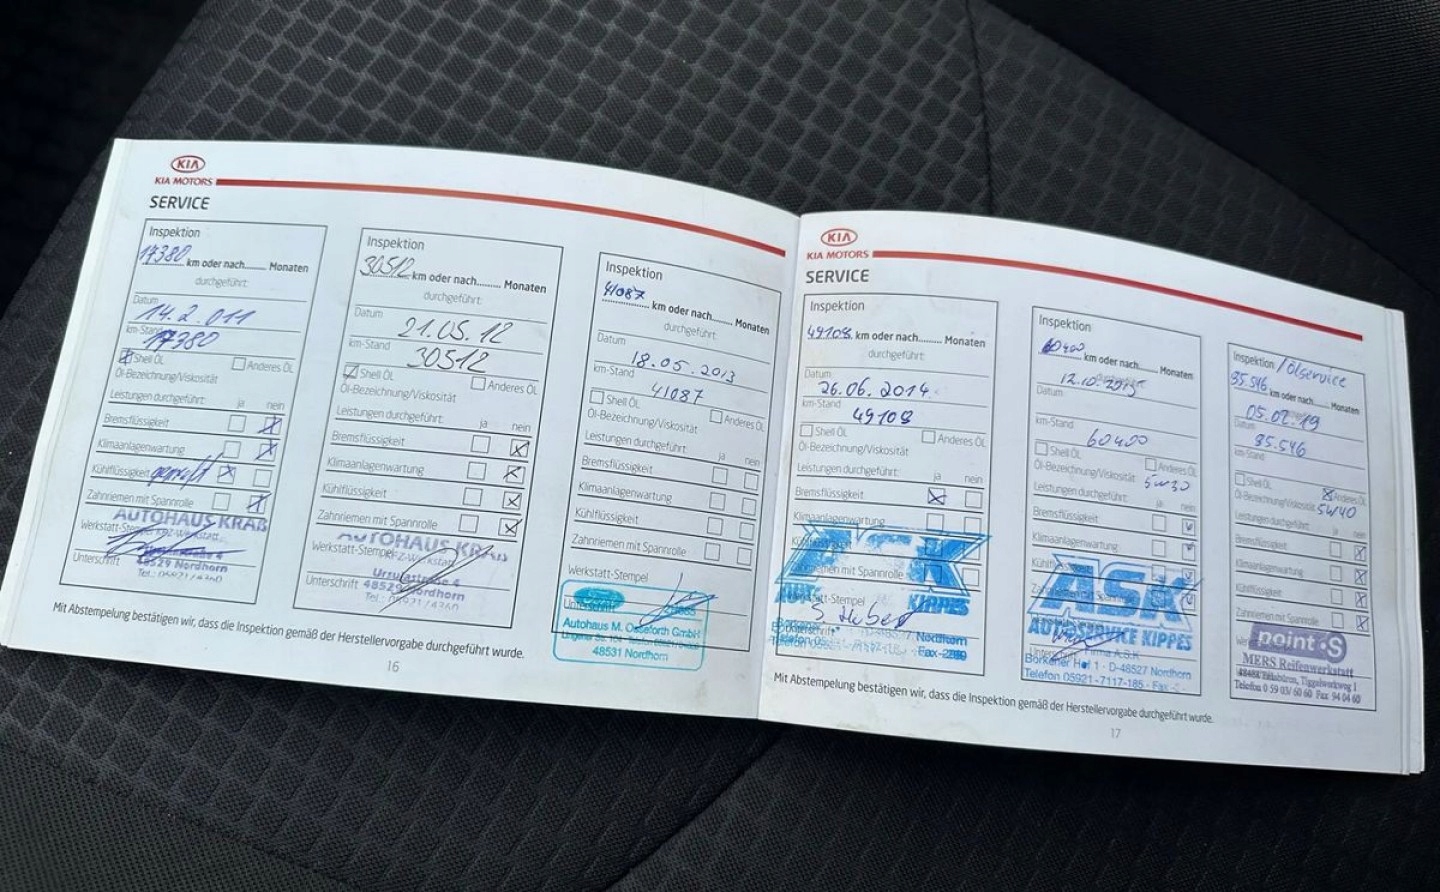 KIA
KIA MOTORS
SERVICE
Inspektion
17380 km oder nach........ Monaten
durchgeführt:
Datum
14.2.011
km-Stand
17380
Shell Öl Anderes Öl
Öl-Bezeichnung/Viskosität
Leistungen durchgeführt: ja nein
Bremsflüssigkeit
Klimaanlagenwartung
Kühlflüssigkeit geprüft
Zahnriemen mit Spannrolle
AUTOHAUS KRAß
Werkstatt-Stempel KFZ-Werkstatt
48529 Nordhorn
Unterschrift
Inspektion
30512 km oder nach......... Monaten
durchgeführt:
Datum
21.05.12
km-Stand
30512
Shell Öl Anderes Öl
Öl-Bezeichnung/Viskosität
Leistungen durchgeführt: ja nein
Bremsflüssigkeit
Klimaanlagenwartung
Kühlflüssigkeit
Zahnriemen mit Spannrolle
AUTOHAUS KRAß
Werkstatt-Stempel KFZ-Werkstatt
Ursulastraße 4
Unterschrift 48529 Nordhorn
Tel.: 05921/4360
Inspektion
41087
km oder nach........ Monaten
durchgeführt:
Datum
18.05.2013
km-Stand
41087
Shell Öl Anderes Öl
Öl-Bezeichnung/Viskosität
Leistungen durchgeführt: ja nein
Bremsflüssigkeit
Klimaanlagenwartung
Kühlflüssigkeit
Zahnriemen mit Spannrolle
Werkstatt-Stempel
Unterschrift
Autohaus M. Osseforth GmbH
48531 Nordhorn
Mit Abstempelung bestätigen wir, dass die Inspektion gemäß der Herstellervorgabe durchgeführt wurde.
16
KIA
KIA MOTORS
SERVICE
Inspektion
49108 km oder nach........ Monaten
durchgeführt:
Datum
26.06.2014
km-Stand
49108
Shell Öl Anderes Öl
Öl-Bezeichnung/Viskosität
Leistungen durchgeführt: ja nein
Bremsflüssigkeit
Klimaanlagenwartung
Kühlflüssigkeit
Zahnriemen mit Spannrolle
ASK
KIPPES
Werkstatt-Stempel
Nordhorn
Inspektion
60400
km oder nach........ Monaten
durchgeführt:
Datum 12.10.2015
km-Stand
60400
Shell Öl Anderes Öl
Öl-Bezeichnung/Viskosität 5W30
Leistungen durchgeführt: ja nein
Bremsflüssigkeit
Klimaanlagenwartung
Kühlflüssigkeit
Zahnriemen
ASK
AUTOSERVICE KIPPES
Unterschrift Firma A.S.K
Borkener Hof 1 · D-48527 Nordhorn
Telefon 05921-7117-185 · Fax
Inspektion / Ölservice
85.546 km oder nach........ Monaten
durchgeführt:
05.02.19
Datum
85.546
km-Stand
Shell Öl Anderes Öl
Öl-Bezeichnung/Viskosität 5W40
Leistungen durchgeführt: ja nein
Bremsflüssigkeit
Klimaanlagenwartung
Kühlflüssigkeit
Zahnriemen mit Spannrolle
point S
MERS Reifenwerkstatt
Telefon 0 59 03/ 60 60 Fax 94 04 60
Mit Abstempelung bestätigen wir, dass die Inspektion gemäß der Herstellervorgabe durchgeführt wurde.
17